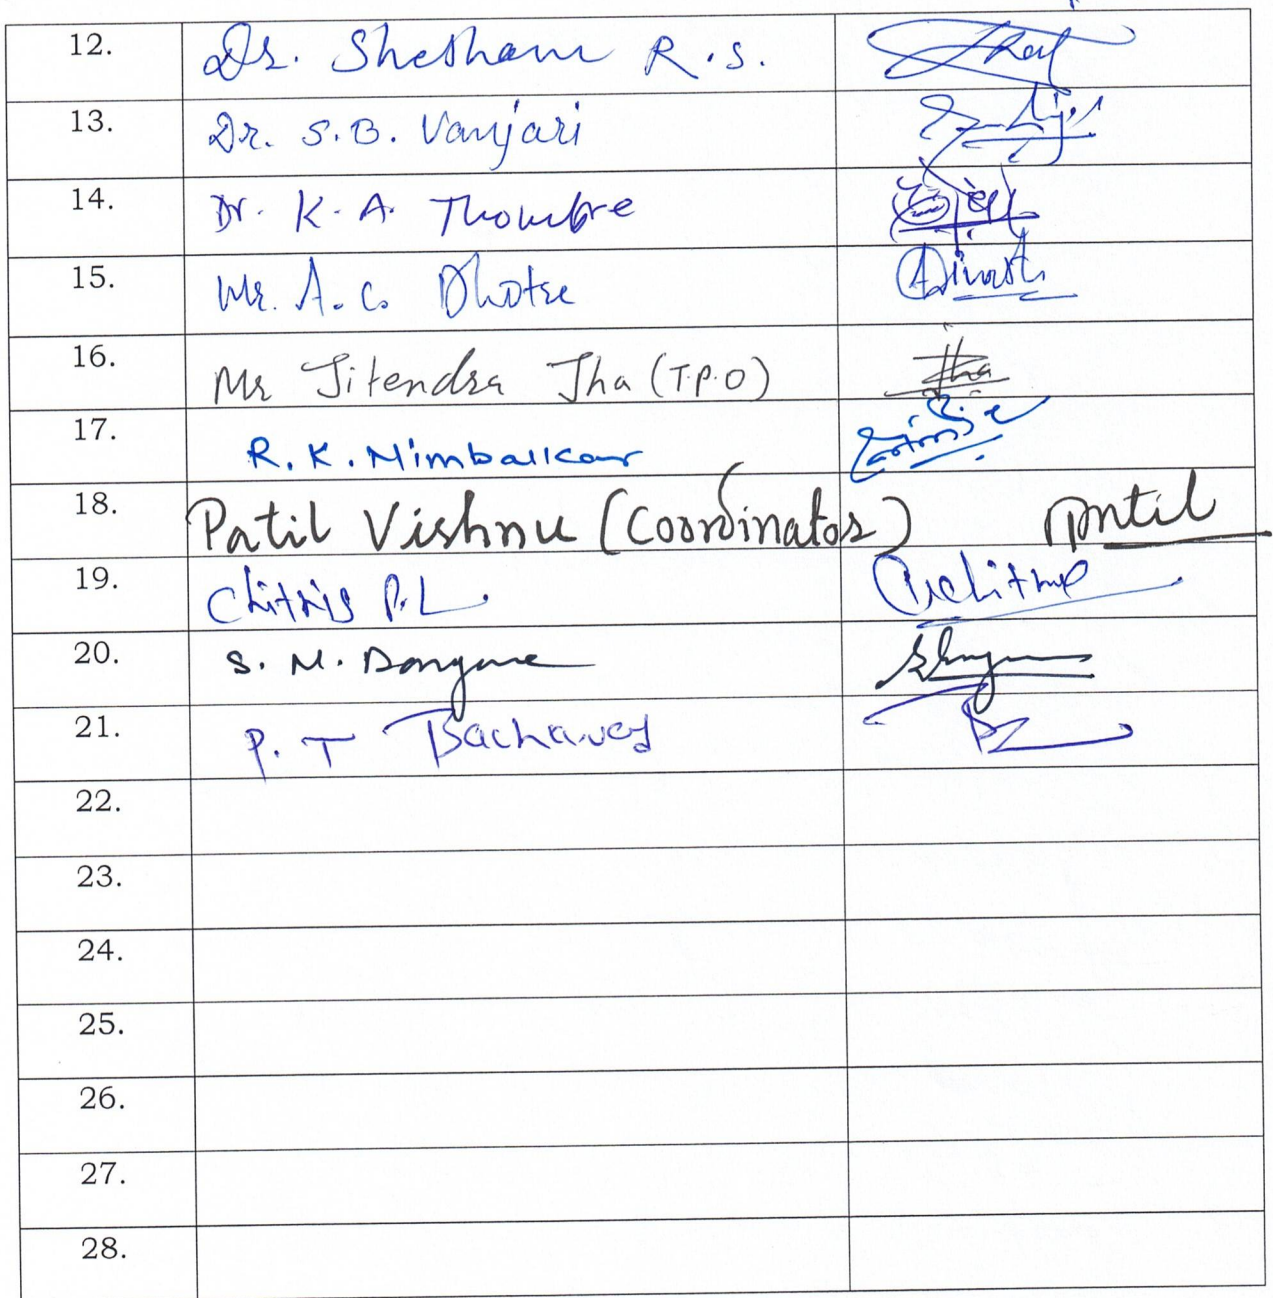 12. Dr. Shesham R.S.
13. Dr. S.B. Vanjari
14. Dr. K.A. Thombre
15. Mr. A.C. Dhotre
16. Mr Jitendra Jha (T.P.O) Jha
17. R.K. Nimbalkar
18. Patil Vishnu (Coordinator) Patil
19. Chitnis P.L.
20. S.M. Dongare
21. P.T
22.
23.
24.
25.
26.
27.
28.